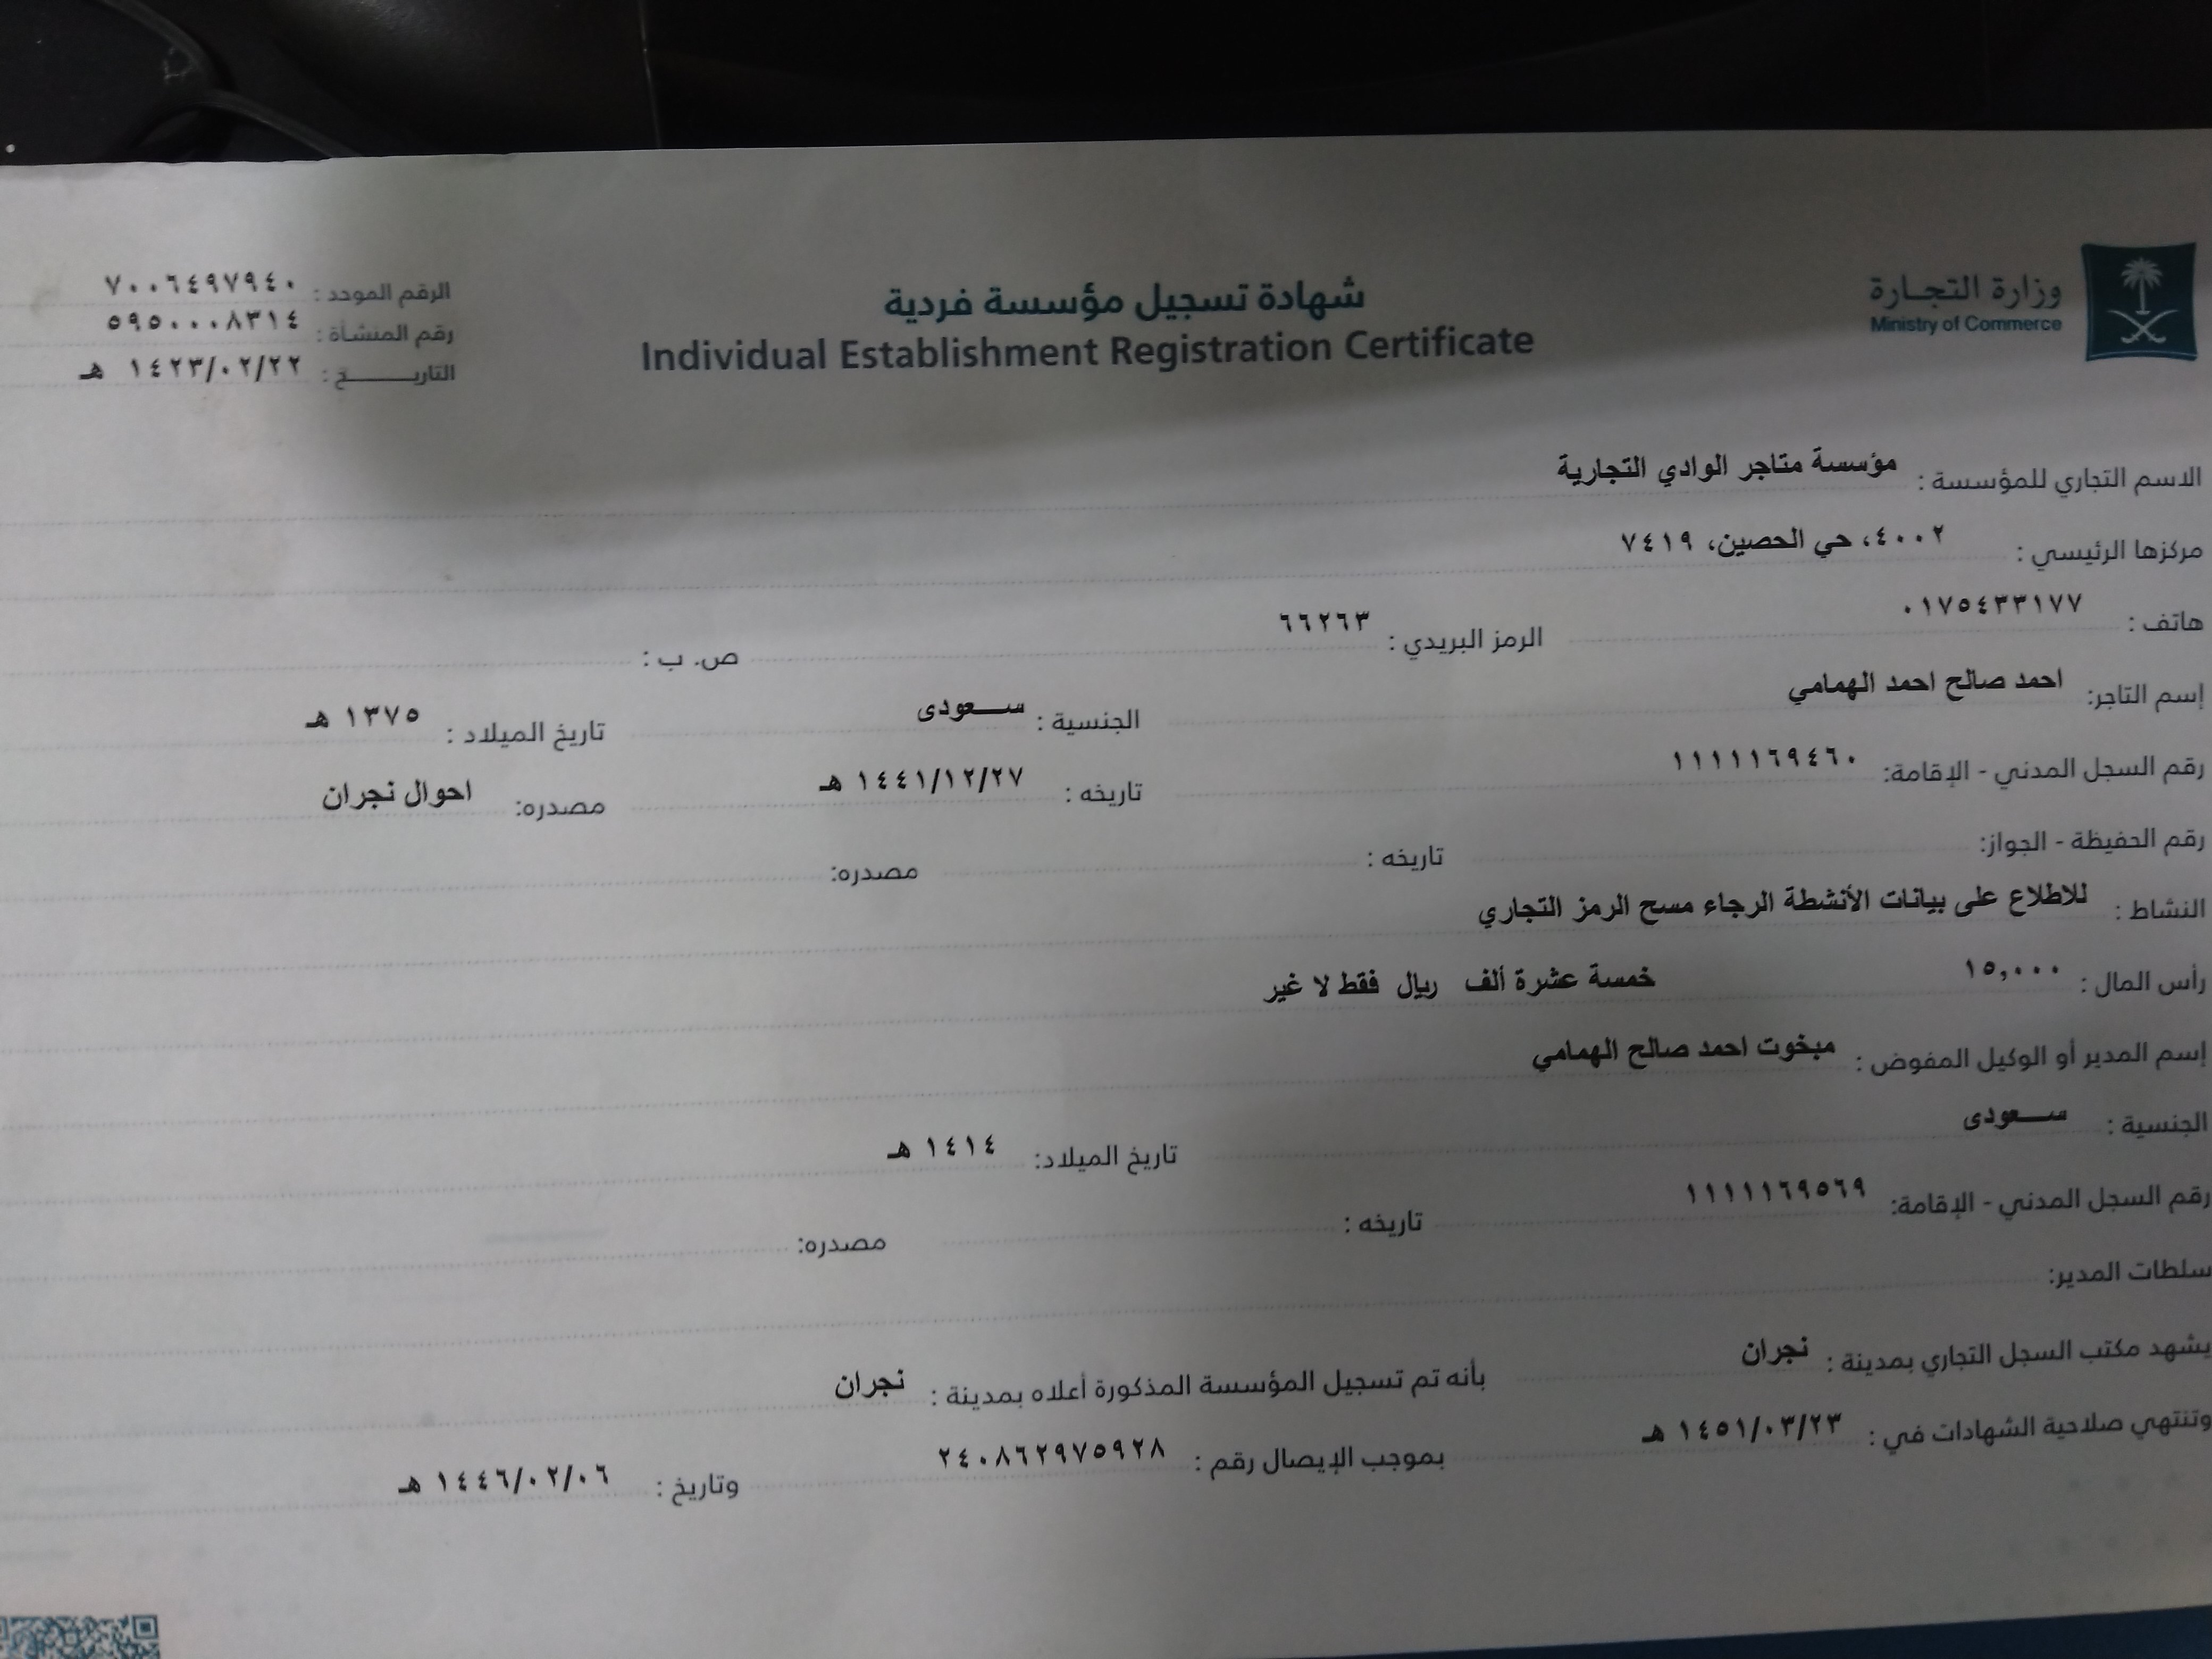 وزارة التجـارة
Ministry of Commerce
شهادة تسجيل مؤسسة فردية
Individual Establishment Registration Certificate
الرقم الموحد : ٧٠٠٦٤٩٧٩٤٠
رقم المنشأة : ٥٩٥٠٠٠٨٣١٤
التاريــــــخ : ١٤٢٣/٠٢/٢٢ هـ
الاسم التجاري للمؤسسة : مؤسسة متاجر الوادي التجارية
مركزها الرئيسي : ٤٠٠٢، حي الحصين، ٧٤١٩
هاتف : ٠١٧٥٤٣٣١٧٧ الرمز البريدي : ٦٦٢٦٣ ص. ب :
إسم التاجر: احمد صالح احمد الهمامي الجنسية : ســـعودى تاريخ الميلاد : ١٣٧٥ هـ
رقم السجل المدني - الإقامة: ١١١١١٦٩٤٦٠ تاريخه : ١٤٤١/١٢/٢٧ هـ مصدره: احوال نجران
رقم الحفيظة - الجواز: تاريخه : مصدره:
النشاط : للاطلاع على بيانات الأنشطة الرجاء مسح الرمز التجاري
رأس المال : ١٥,٠٠٠ خمسة عشرة ألف ريال فقط لا غير
إسم المدير أو الوكيل المفوض : مبخوت احمد صالح الهمامي
الجنسية : ســـعودى تاريخ الميلاد: ١٤١٤ هـ
رقم السجل المدني - الإقامة: ١١١١١٦٩٥٦٩ تاريخه : مصدره:
سلطات المدير:
يشهد مكتب السجل التجاري بمدينة : نجران بأنه تم تسجيل المؤسسة المذكورة أعلاه بمدينة : نجران
وتنتهي صلاحية الشهادات في : ١٤٥١/٠٣/٢٣ هـ بموجب الإيصال رقم : ٢٤٠٨٦٢٩٧٥٩٢٨ وتاريخ : ١٤٤٦/٠٢/٠٦ هـ